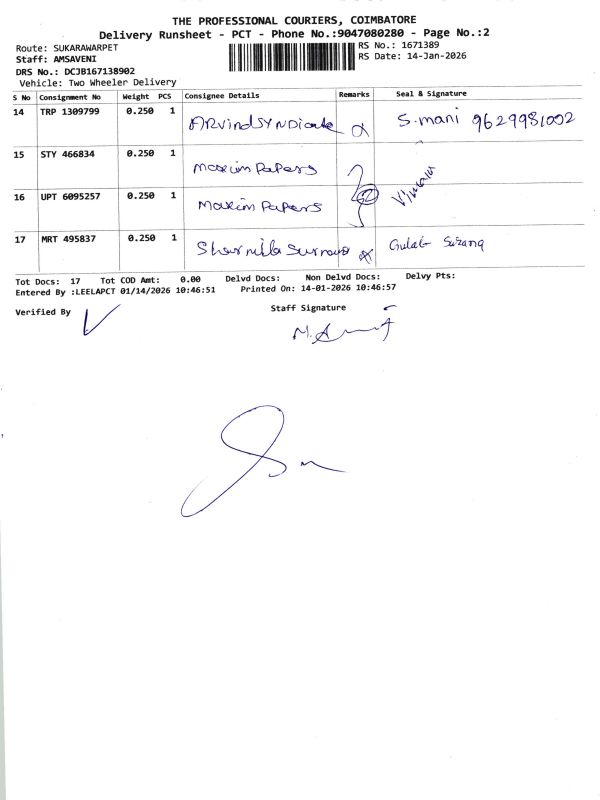 THE PROFESSIONAL COURIERS, COIMBATORE
Delivery Runsheet - PCT - Phone No.:9047080280 - Page No.:2
Route: SUKARAWARPET
RS No.: 1671389
Staff: AMSAVENI
RS Date: 14-Jan-2026
DRS No.: DCJB167138902
Vehicle: Two Wheeler Delivery
S No Consignment No Weight PCS Consignee Details Remarks Seal & Signature
14 TRP 1309799 0.250 1 ARvind SYNDicate S.mani 9629981002
15 STY 466834 0.250 1 Maxim Papers
16 UPT 6095257 0.250 1 Maxim Papers
17 MRT 495837 0.250 1 Sharmila Gulab
Tot Docs: 17 Tot COD Amt: 0.00 Delvd Docs: Non Delvd Docs: Delvy Pts:
Entered By :LEELAPCT 01/14/2026 10:46:51 Printed On: 14-01-2026 10:46:57
Verified By
Staff Signature